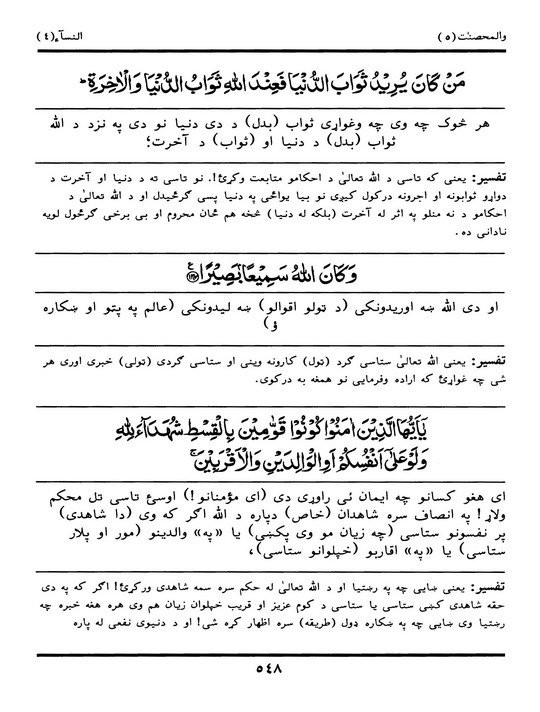 والمحصنٰت (٥)
النسآء (٤)
مَنْ كَانَ يُرِيْدُ ثَوَابَ الدُّنْيَا فَعِنْدَ اللّٰهِ ثَوَابُ الدُّنْيَا وَالْاٰخِرَةِ ؕ
هر څوک چه وی چه وغواړی ثواب (بدل) د دی دنیا نو دی په نزد د الله
ثواب (بدل) د دنیا او (ثواب) د آخرت؛
تفسیر: یعنی که تاسی د الله تعالیٰ د احکامو متابعت وکړئ!. نو تاسی ته د دنیا او آخرت د
دواړو ثوابونه او اجرونه درکول کیږی نو بیا یواځی په دنیا پسی گرځیدل او د الله تعالیٰ د
احکامو د نه منلو په اثر له آخرت (بلکه له دنیا) څخه هم ځان محروم او بی برخی گرځول لویه
نادانی ده.
وَكَانَ اللّٰهُ سَمِيْعًا بَصِيْرًا ﴿١٣٤﴾
او دی الله ښه اوریدونکی (د ټولو اقوالو) ښه لیدونکی (عالم په پټو او ښکاره
ؤ)
تفسیر: یعنی الله تعالیٰ ستاسی گرد (ټول) کارونه وینی او ستاسی گردی (ټولی) خبری اوری هر
شی چه غواړئ که اراده وفرمایی نو همغه به درکوی.
يٰۤاَيُّهَا الَّذِيْنَ اٰمَنُوْا كُوْنُوْا قَوّٰمِيْنَ بِالْقِسْطِ شُهَدَآءَ لِلّٰهِ
وَلَوْ عَلٰۤى اَنْفُسِكُمْ اَوِ الْوَالِدَيْنِ وَالْاَقْرَبِيْنَ ۚ
ای هغو کسانو چه ایمان ئی راوړی دی (ای مؤمنانو!) اوسئ تاسی تل محکم
ولاړ! په انصاف سره شاهدان (خاص) دپاره د الله اگر که وی (دا شاهدی)
پر نفسونو ستاسی (چه زیان مو وی پکښی) یا «په» والدینو (مور او پلار
ستاسی) یا «په» اقاربو (خپلوانو ستاسی)،
تفسیر: یعنی ښایی چه په رښتیا او د الله تعالیٰ له حکم سره سمه شاهدی ورکړئ! اگر که په دی
حقه شاهدی کښی ستاسی یا ستاسی د کوم عزیز او قریب خپلوان زیان هم وی هره هغه خبره چه
رښتیا وی ښایی چه په ښکاره ډول (طریقه) سره اظهار کړه شی! او د دنیوی نفعی له پاره
٥٤٨